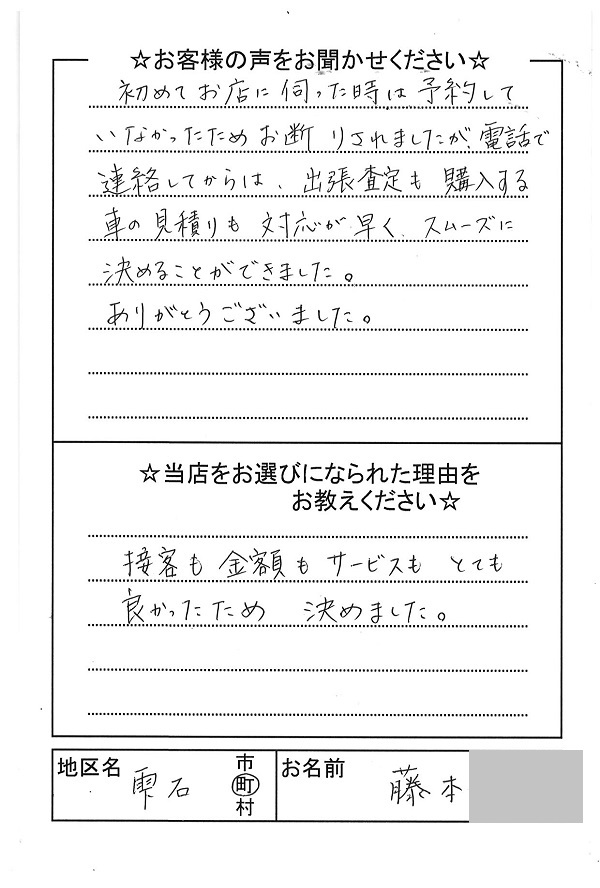 ☆お客様の声をお聞かせください☆
初めてお店に伺った時は予約して
いなかったためお断りされましたが、電話で
連絡してからは、出張査定も購入する
車の見積りも対応が早く、スムーズに
決めることができました。
ありがとうございました。
☆当店をお選びになられた理由を
お教えください☆
接客も金額もサービスもとても
良かったため 決めました。
地区名 雫石 市町村 お名前 藤本